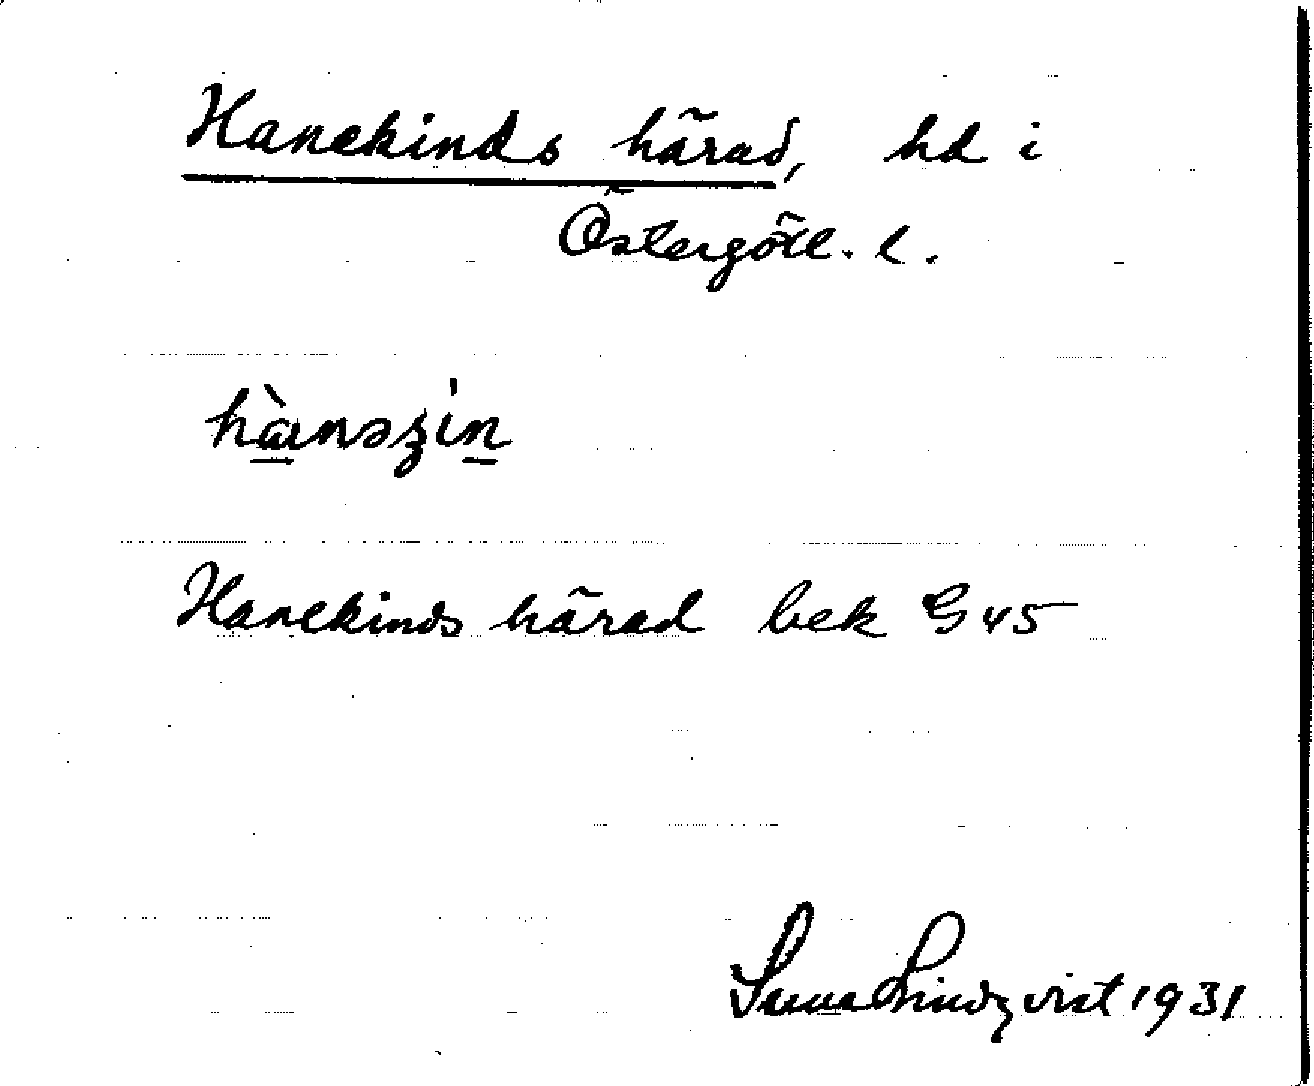 Hanekinds härad, hd i
Östergötl. l.
hànəʒin
Hanekinds härad bek G45
Suna Lindqvist 1931